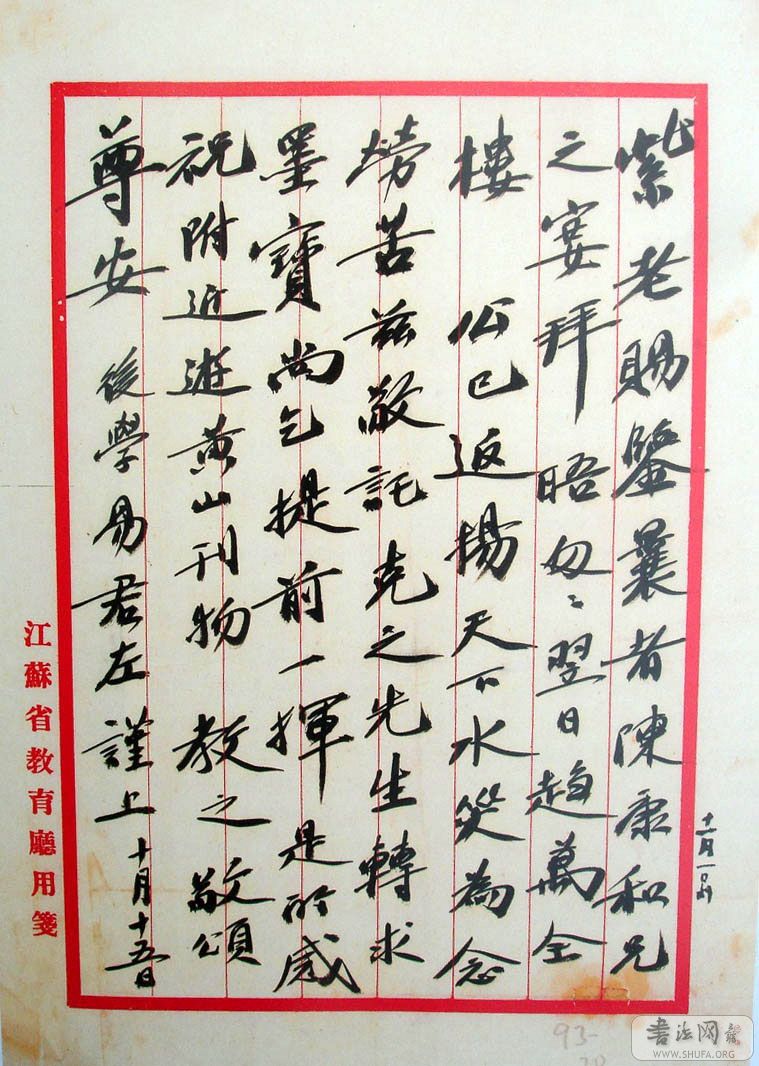 紫老賜鑒曩者陳康和兄
之宴拜 晤匆匆翌日趨萬全
樓 公已返揚天下水災為念
勞苦茲敬託克之先生轉求
墨寶尚乞提前一揮是所感
祝附近遊黃山刊物 教之敬頌
尊安 後學易君左謹上 十月十五日
十一月一日
江蘇省教育廳用箋
93-
20
書法网
WWW.SHUFA.ORG